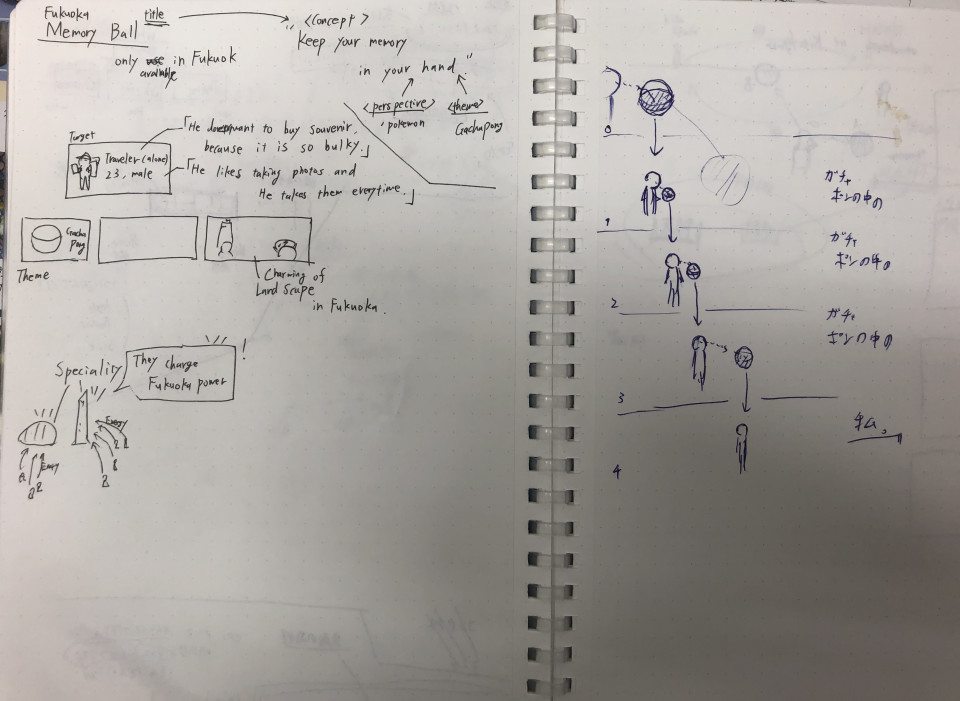 Fukuoka
Memory Ball
title
only available in Fukuok
<Concept>
"Keep your memory
in your hand."
<perspective>
pokemon
<theme>
Gachapong
Target
Traveler (alone)
23, male
「He doesn't want to buy souvenir,
because it is so bulky.」
「He likes taking photos and
He takes them everytime.」
Gacha
Pong
Theme
Charming of
Land Scape
in Fukuoka.
Speciality
They charge
Fukuoka power
!
Energy
Energy
0
ガチャ
ポンの中の
1
ガチャ
ポンの中の
2
ガチャ
ポンの中の
3
4